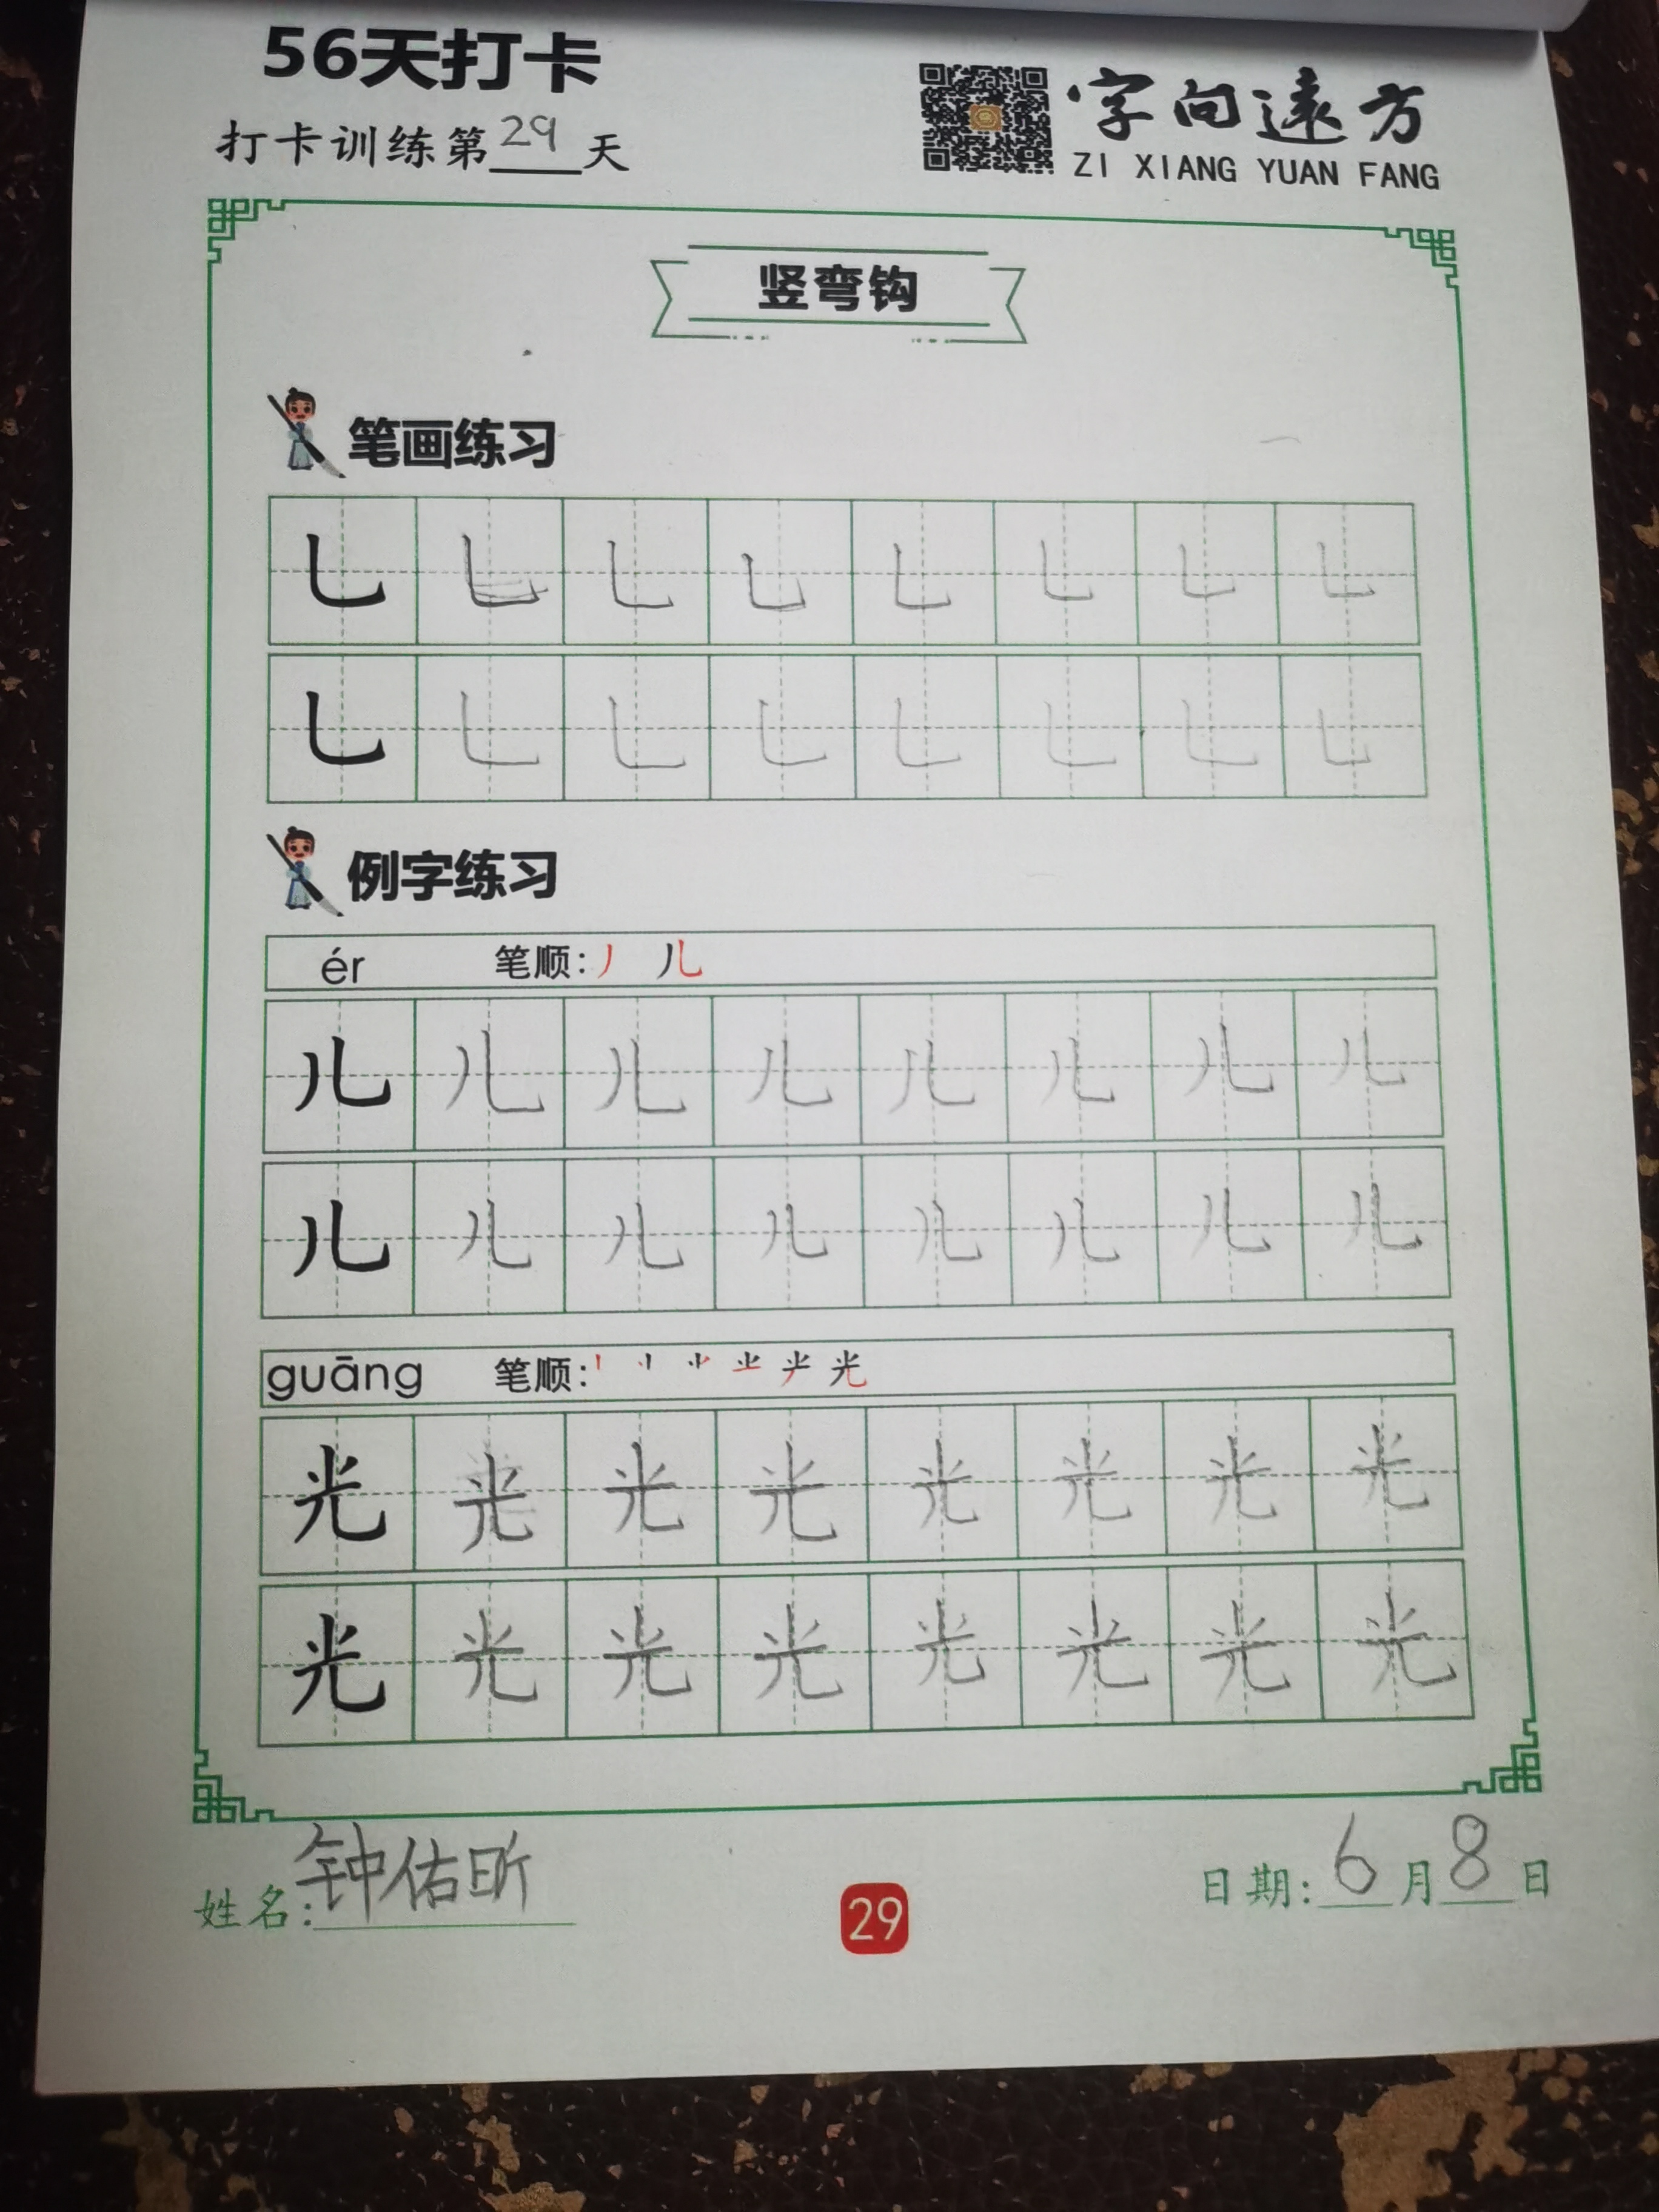 56天打卡
打卡训练第29天
字向遠方
ZI XIANG YUAN FANG
竖弯钩
笔画练习
乚 乚 乚 乚 乚 乚 乚 乚
乚 乚 乚 乚 乚 乚 乚 乚
例字练习
ér 笔顺: 丿 儿
儿 儿 儿 儿 儿 儿 儿 儿
儿 儿 儿 儿 儿 儿 儿 儿
guāng 笔顺: 光
光 光 光 光 光 光 光 光
光 光 光 光 光 光 光 光
姓名: 钟佑昕
29
日期: 6月8日